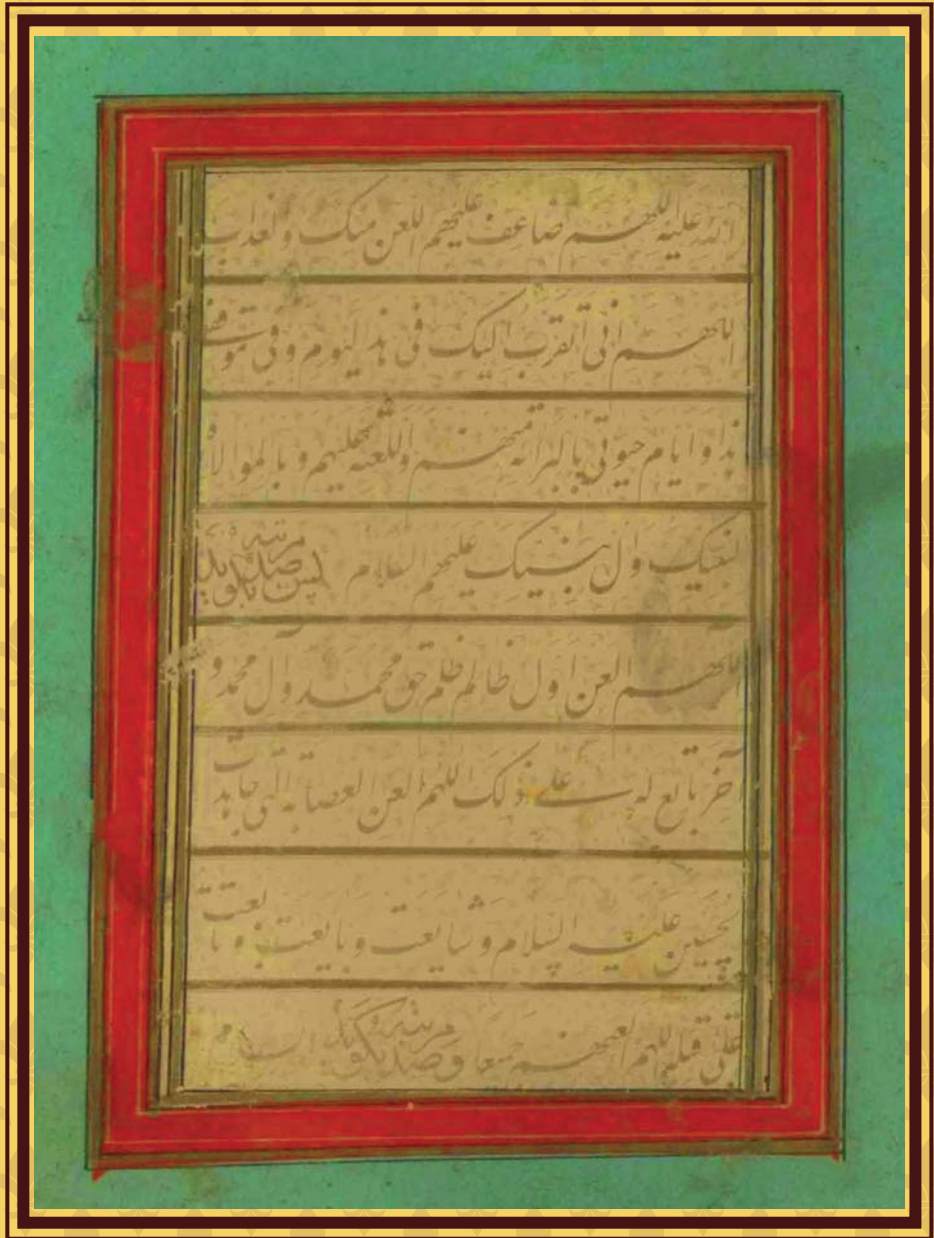 الله علیه اللهم ضاعف علیهم اللعن منک والعذاب
اللهم انی اتقرب الیک فی هذ الیوم وفی موقفی
هذا وایام حیوتی بالبرائه منهم واللعنه علیهم وبالموالات
لنبیک وال نبیک علیهم السلام پس صد مرتبه بگوید
اللهم العن اول ظالم ظلم حق محمد وآل محمد و
آخر تابع له علی ذلک اللهم العن العصابه التی جاهدت
الحسین علیه السلام وشایعت وبایعت وتابعت
علی قتله اللهم العنهم جمیعا وصد مرتبه بگوید